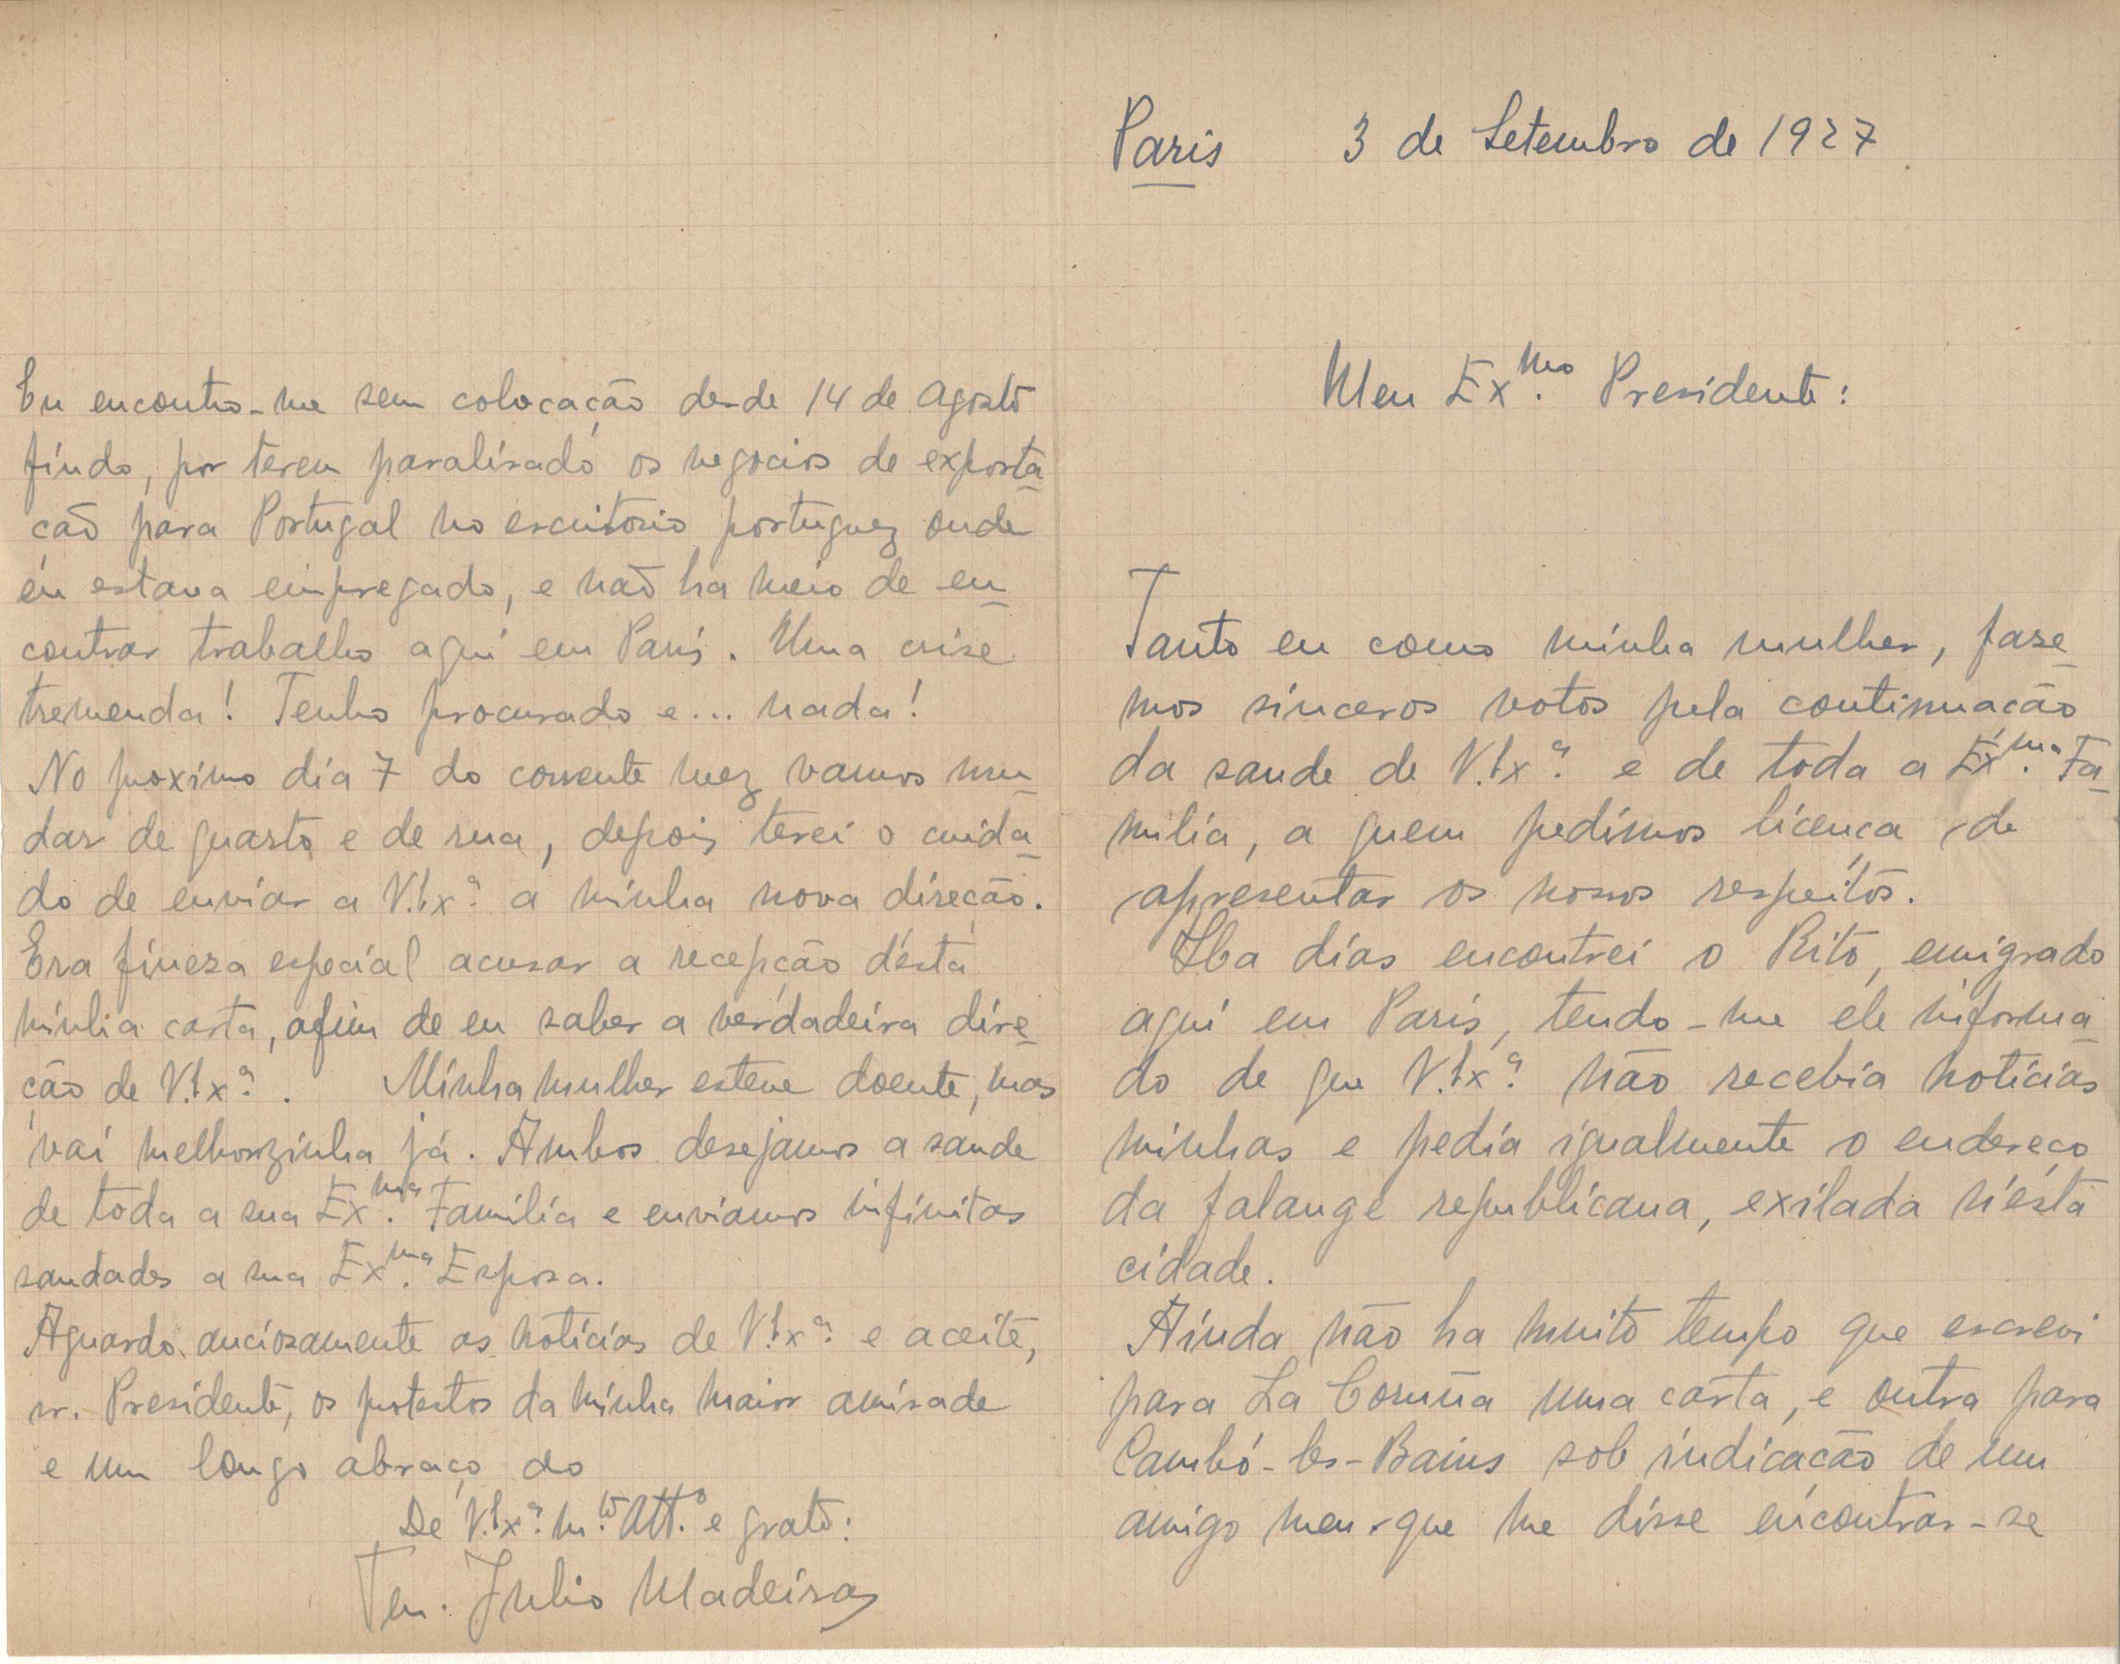 Paris 3 de Setembro de 1927
Meu Ex.mo Presidente:
Tanto eu como minha mulher, faze-
mos sinceros votos pela continuação
da saude de V. Ex.ª e de toda a Ex.ma Fa-
milia, a quem pedimos licença de
apresentar os nossos respeitos.
Ha dias encontrei o Rito, emigrado
aqui em Paris, tendo-me ele informa-
do de que V. Ex.ª não recebia noticias
minhas e pedia igualmente o endereço
da falange republicana, exilada n'esta
cidade.
Ainda não ha muito tempo que escrevi
para La Coruña uma carta, e outra para
Cambó-les-Bains sob indicação de um
amigo meu que me disse encontrar-se
Eu encontro-me sem colocação desde 14 de Agosto
findo, por terem paralisado os negocios de exporta-
ção para Portugal no escritorio portuguez onde
eu estava empregado, e não ha meio de en-
contrar trabalho aqui em Paris. Uma crise
tremenda! Tenho procurado e... nada!
No proximo dia 7 do corrente mez vamos mu-
dar de quarto e de rua, depois terei o cuida-
do de enviar a V. Ex.ª a minha nova direção.
Era fineza especial acusar a recepção d'esta
minha carta, afim de eu saber a verdadeira dire-
ção de V. Ex.ª. Minha mulher esteve doente, mas
vai melhorzinha já. Ambos desejamos a saude
de toda a sua Ex.ma Familia e enviamos infinitas
saudades a sua Ex.ma Esposa.
Aguardo anciosamente as noticias de V. Ex.ª e aceite,
sr. Presidente, os protestos da minha maior amisade
e um longo abraço do
De V. Ex.ª m.to Att.º e grato:
Ten. Julio Madeira